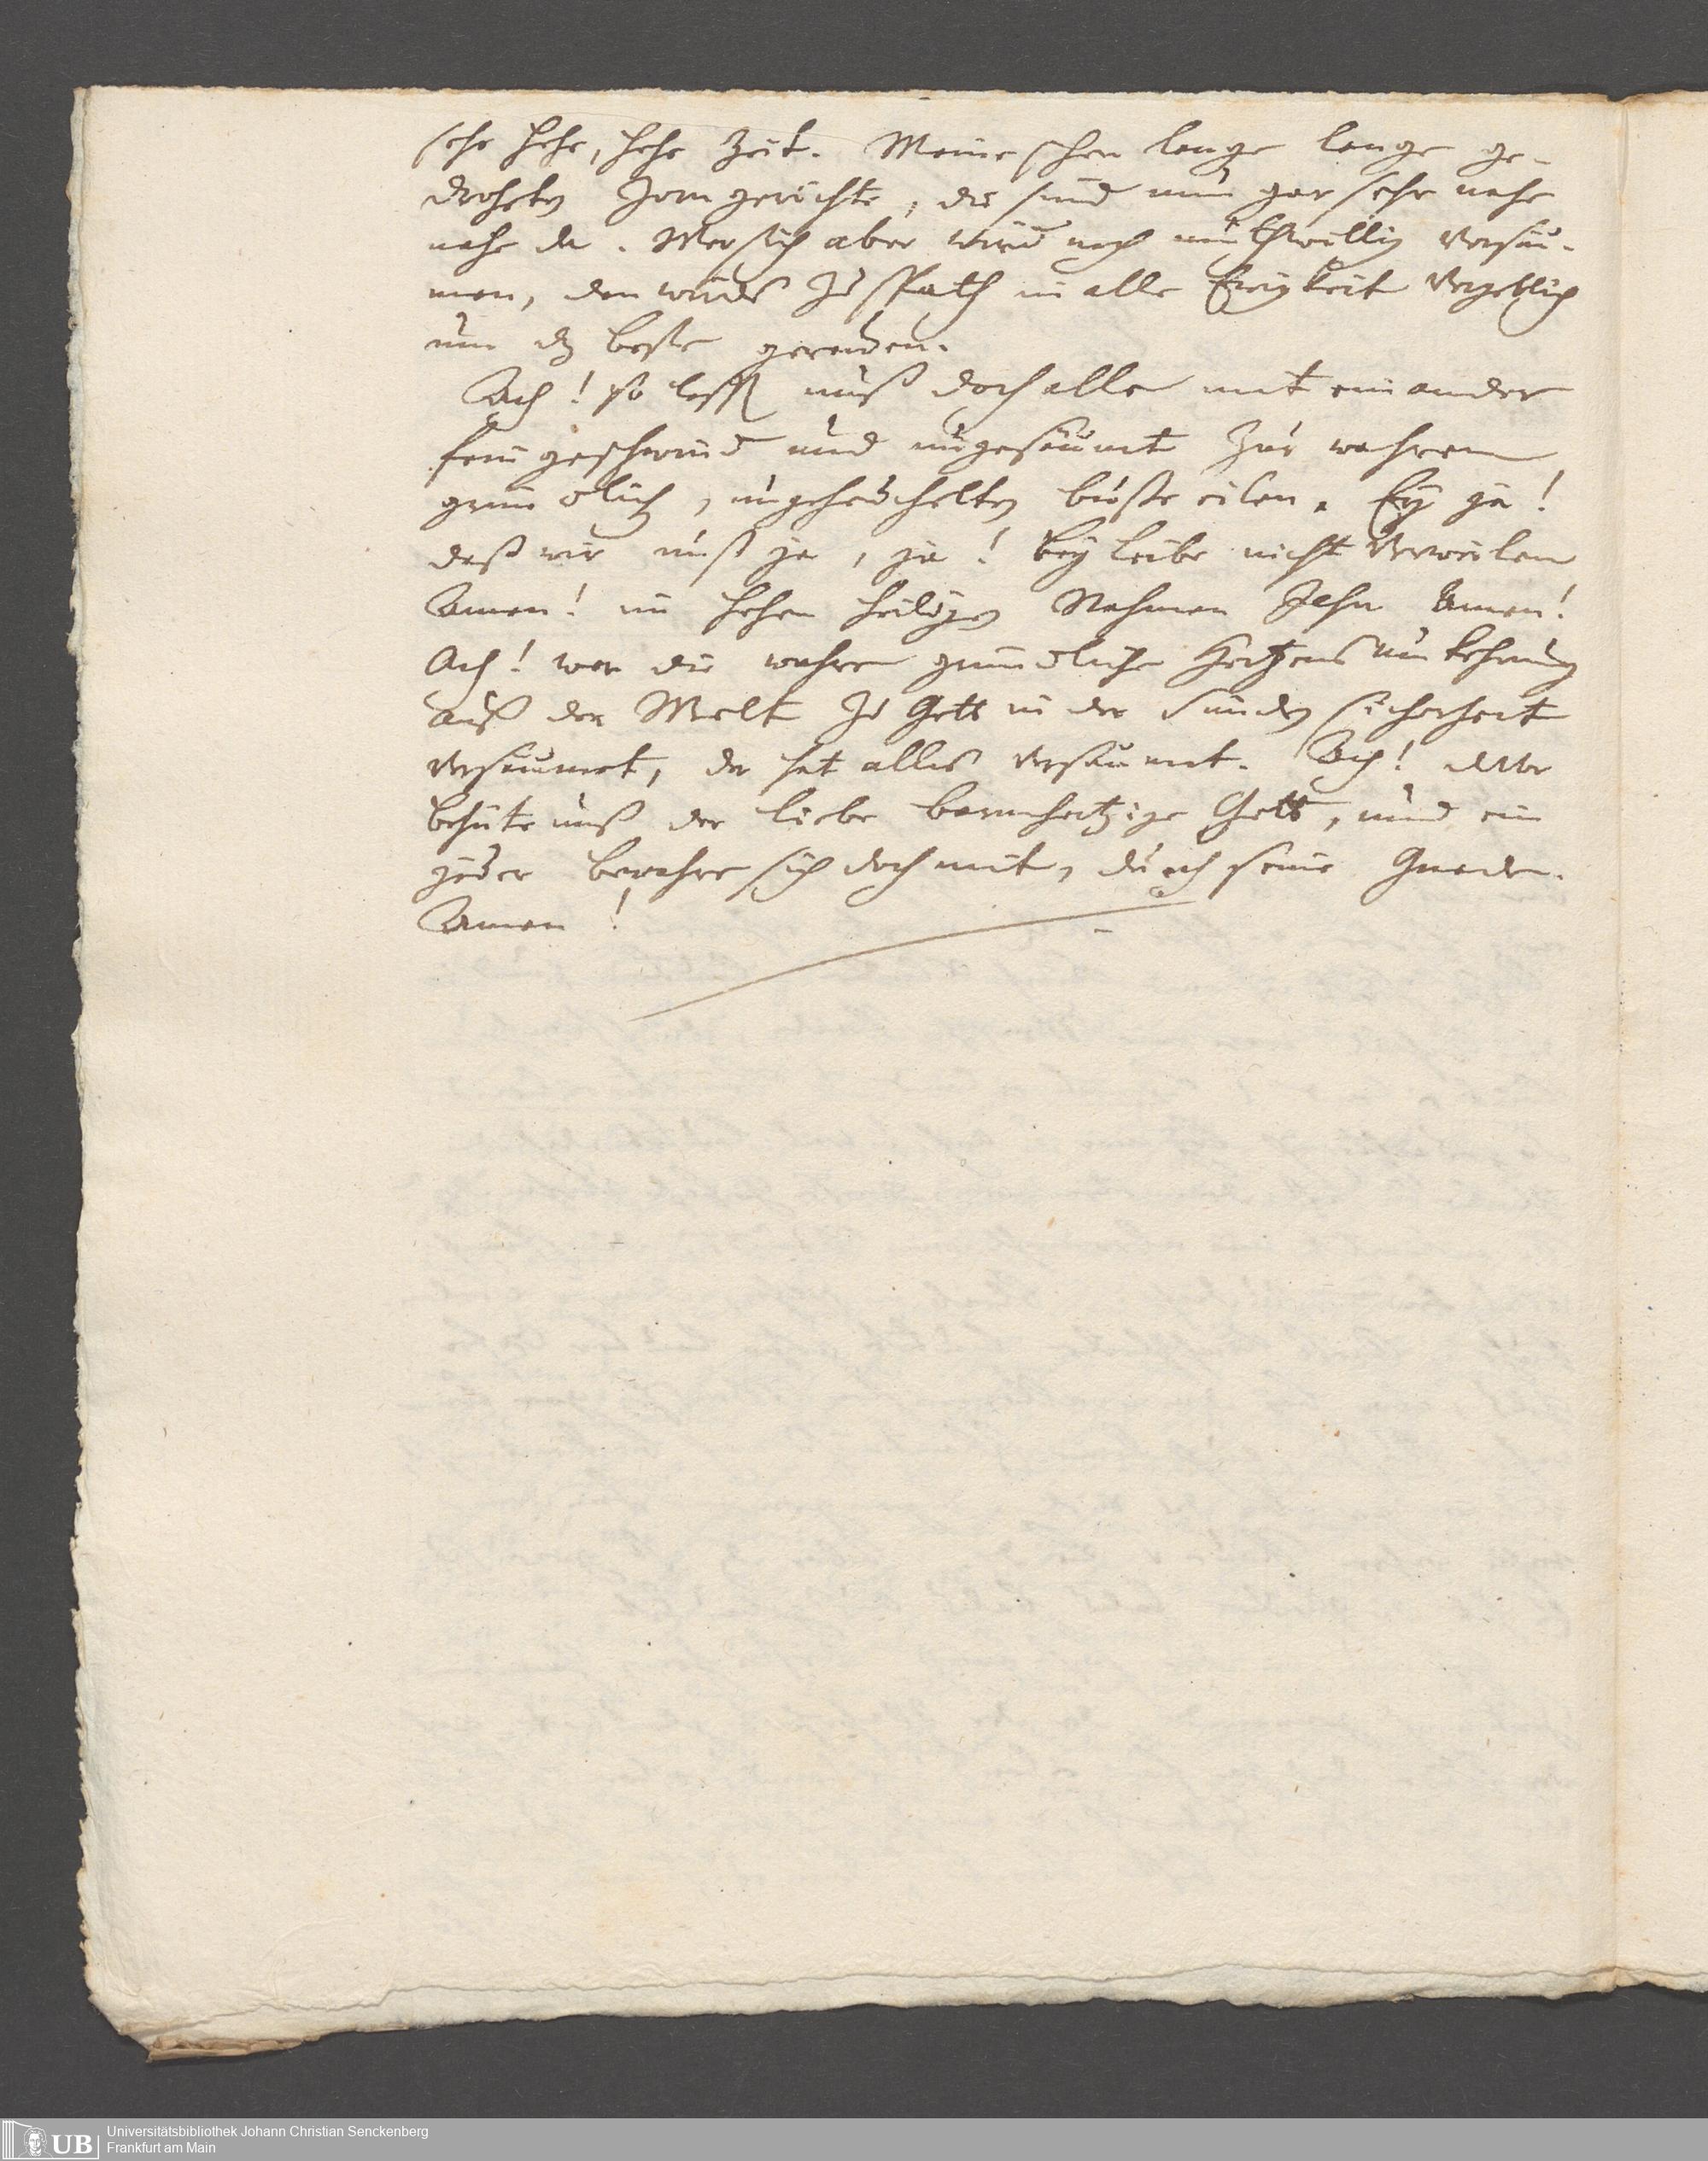 sehr hohe, hohe Zeit. Meine schon lange lange ge-
droheten Zorngerichte, die sind nun gar sehr nahe
nahe da. Wer sich aber wird noch muthwillig versäu-
men, den wirds zu spath in alle Ewigkeit vergeblich
um dz beste gereuen.
Ach! so lasst unß doch alle mit einander
fein geschwind und ungesäumt zur wahren
gründlichen, ungeheuchelten busse eilen. Ey ja!
daß wir unß ja, ja! bey leibe nicht verweilen
Amen! im hohen heiligen Nahmen Jesu Amen!
Ach! wer die wahre gründliche Hertzens umkehrung
auß der Welt zu Gott in der Sünden sicherheit
versäumet, der hat alles versäumet. Ach! davor
behüte unß der liebe barmhertzige Gott, und ein
jeder bewahre sich doch mit, durch seine Gnade.
Amen!
UB Universitätsbibliothek Johann Christian Senckenberg
Frankfurt am Main